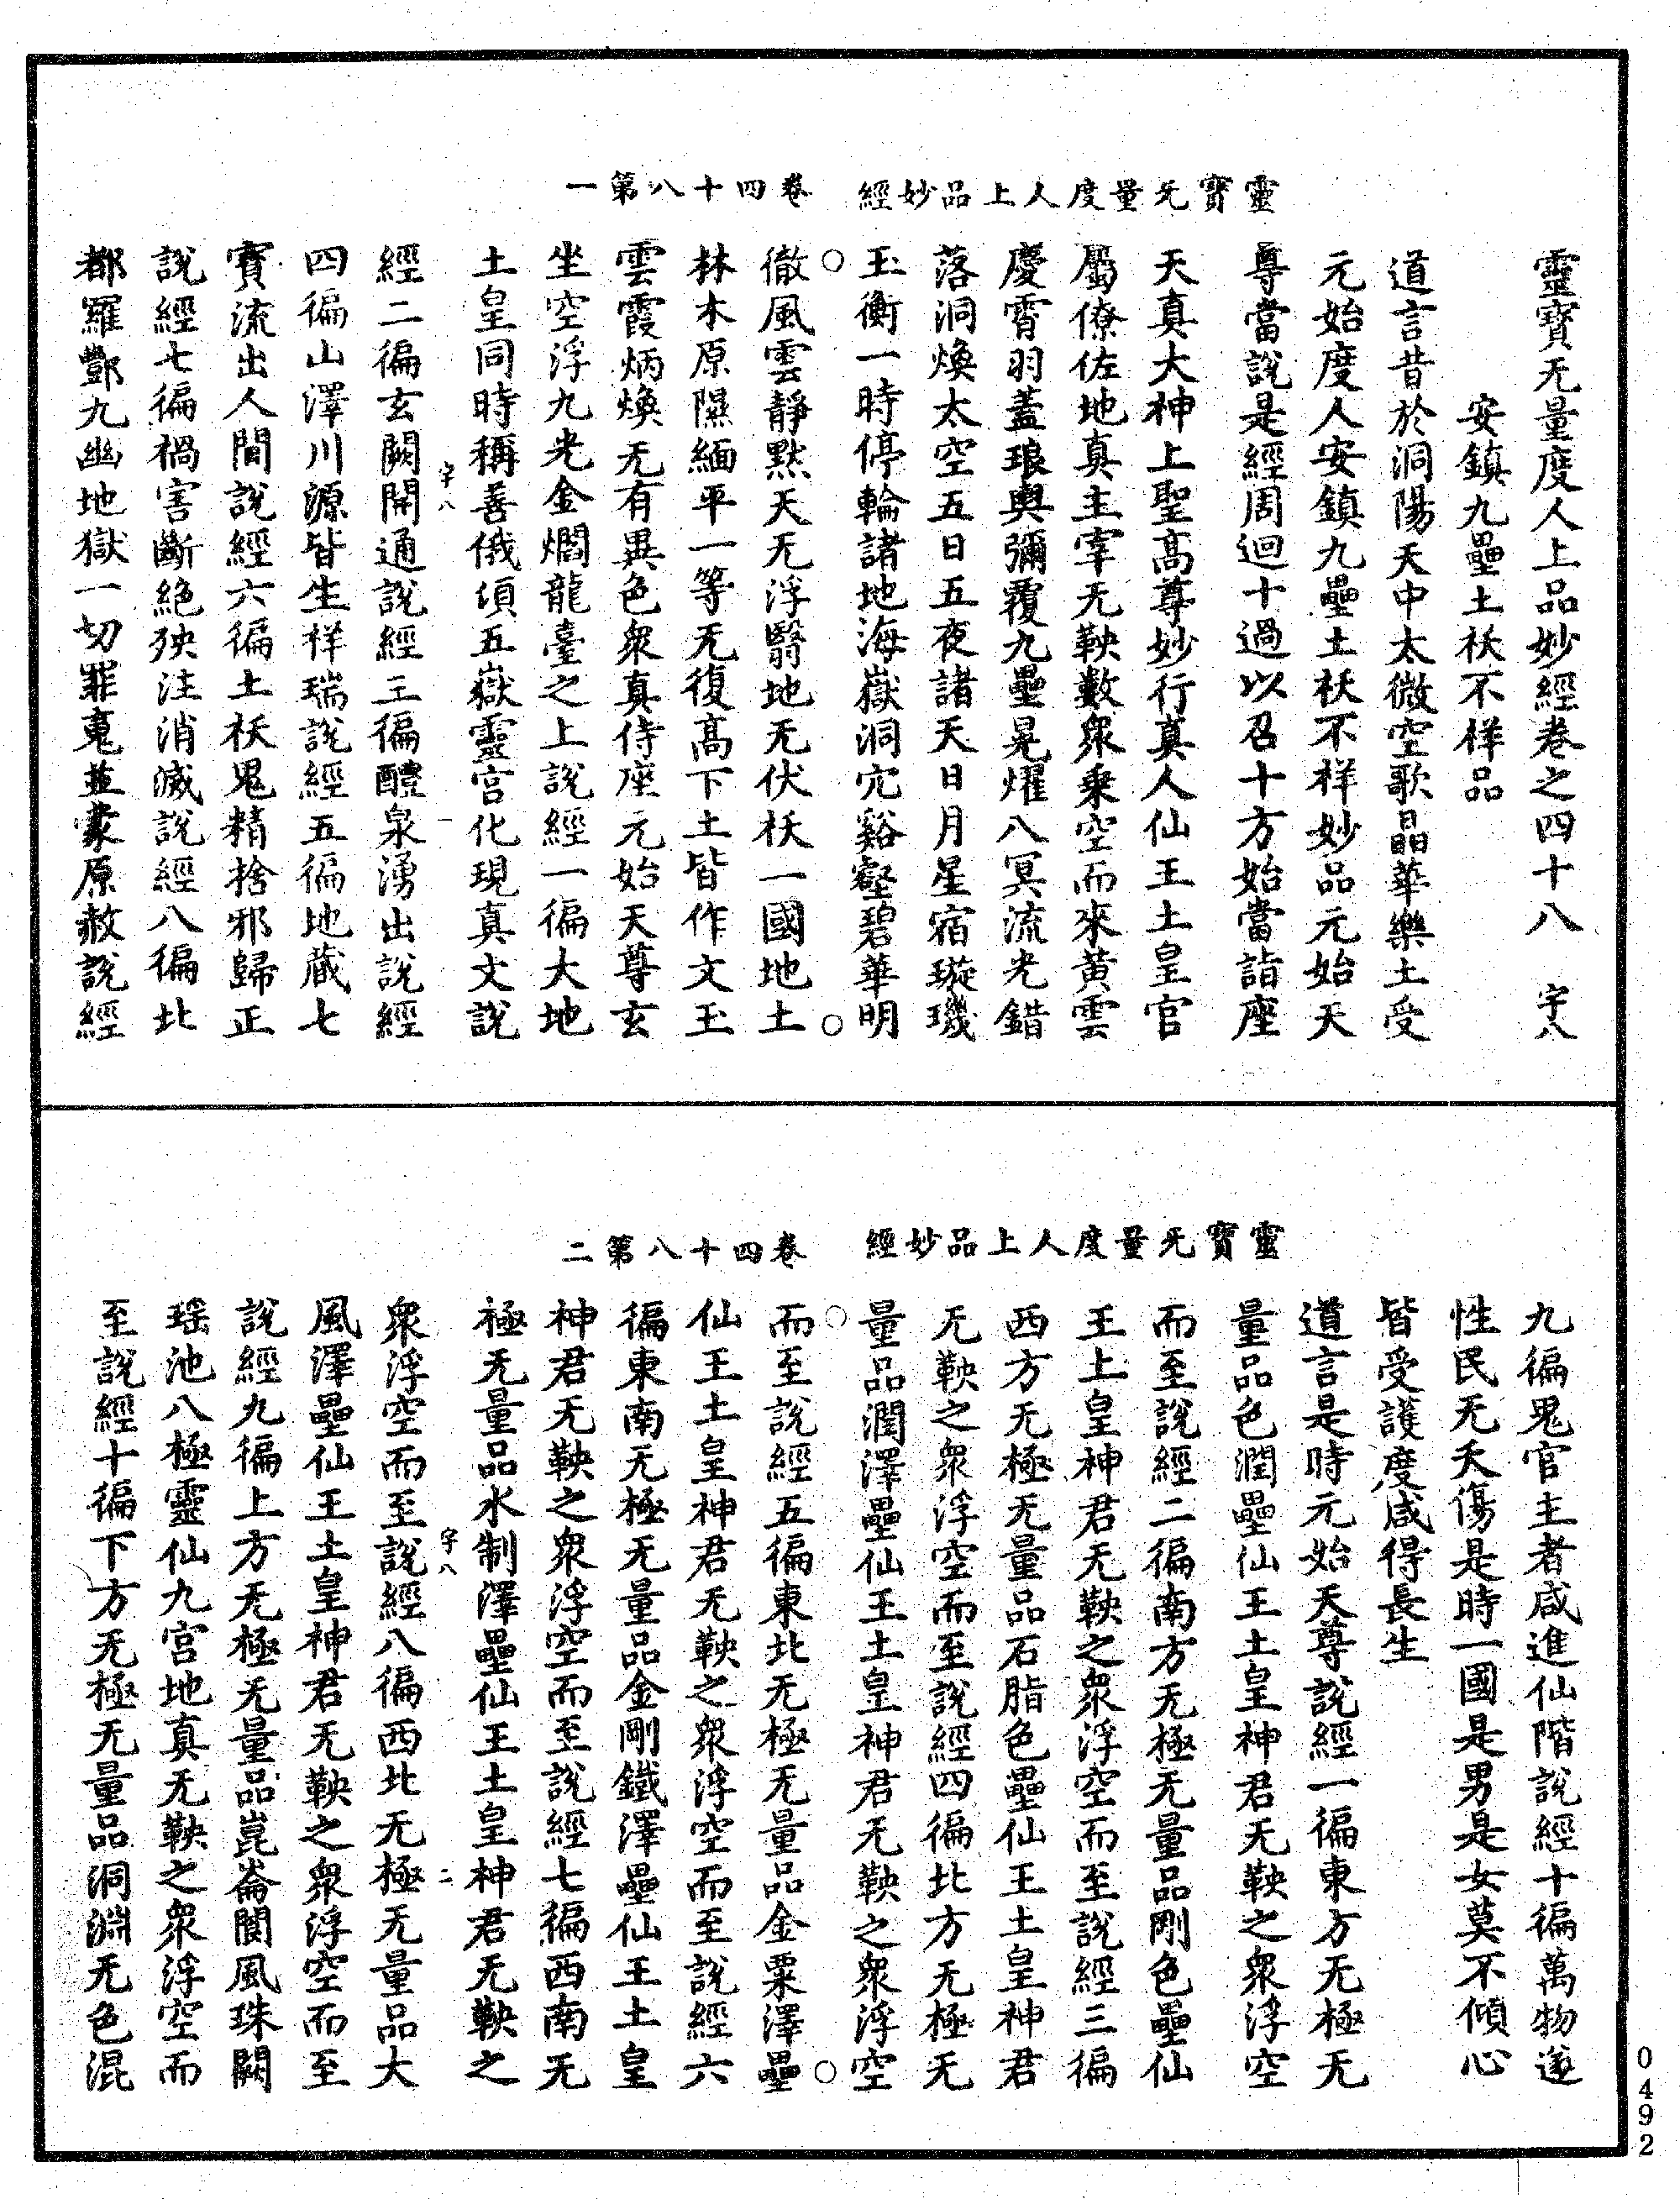 靈寶无量度人上品妙經　卷四十八第一
靈寶无量度人上品妙經卷之四十八　宇八
安鎮九壘土祆不祥品
道言昔於洞陽天中太微空歌晶華樂土受
元始度人安鎮九壘土祆不祥妙品元始天
尊當說是經周迴十過以召十方始當詣座
天真大神上聖高尊妙行真人仙王土皇官
屬僚佐地真主宰无鞅數衆乗空而來黄雲
慶霄羽蓋琅輿彌覆九壘晃燿八冥流光錯
落洞煥太空五日五夜諸天日月星宿璇璣
玉衡一時停輪諸地海嶽洞穴谿壑碧華明
徹風雲靜默天无浮翳地无伏祆一國地土
林木原隰緬平一等无復高下土皆作文玉
雲霞炳煥无有異色衆真侍座元始天尊玄
坐空浮九光金爓龍臺之上說經一徧大地
土皇同時稱善俄頃五嶽靈宮化現真文說
宇八　一
經二徧玄闕開通說經三徧醴泉湧出說經
四徧山澤川源皆生祥瑞說經五徧地藏七
寶流出人間說經六徧土祆鬼精捨邪歸正
說經七徧禍害斷絶殃注消滅說經八徧北
都羅酆九幽地獄一切罪䰟並蒙原赦說經
靈寶无量度人上品妙經　卷四十八第二
九徧鬼官主者咸進仙階說經十徧萬物遂
性民无夭傷是時一國是男是女莫不傾心
皆受護度咸得長生
道言是時元始天尊說經一徧東方无極无
量品色潤壘仙王土皇神君无鞅之衆浮空
而至說經二徧南方无極无量品剛色壘仙
王上皇神君无鞅之衆浮空而至說經三徧
西方无極无量品石脂色壘仙王土皇神君
无鞅之衆浮空而至說經四徧北方无極无
量品潤澤壘仙王土皇神君无鞅之衆浮空
而至說經五徧東北无極无量品金粟澤壘
仙王土皇神君无鞅之衆浮空而至說經六
徧東南无極无量品金剛鐵澤壘仙王土皇
神君无鞅之衆浮空而至說經七徧西南无
極无量品水制澤壘仙王土皇神君无鞅之
宇八　二
衆浮空而至說經八徧西北无極无量品大
風澤壘仙王土皇神君无鞅之衆浮空而至
說經九徧上方无極无量品崑崙閬風珠闕
瑶池八極靈仙九宮地真无鞅之衆浮空而
至說經十徧下方无極无量品洞淵无色混
0492